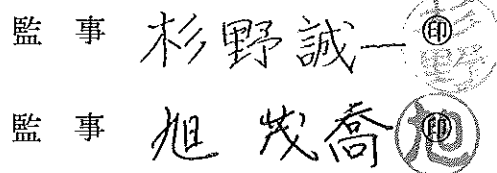 監事 杉野誠一 ㊞
監事 旭 茂喬 ㊞